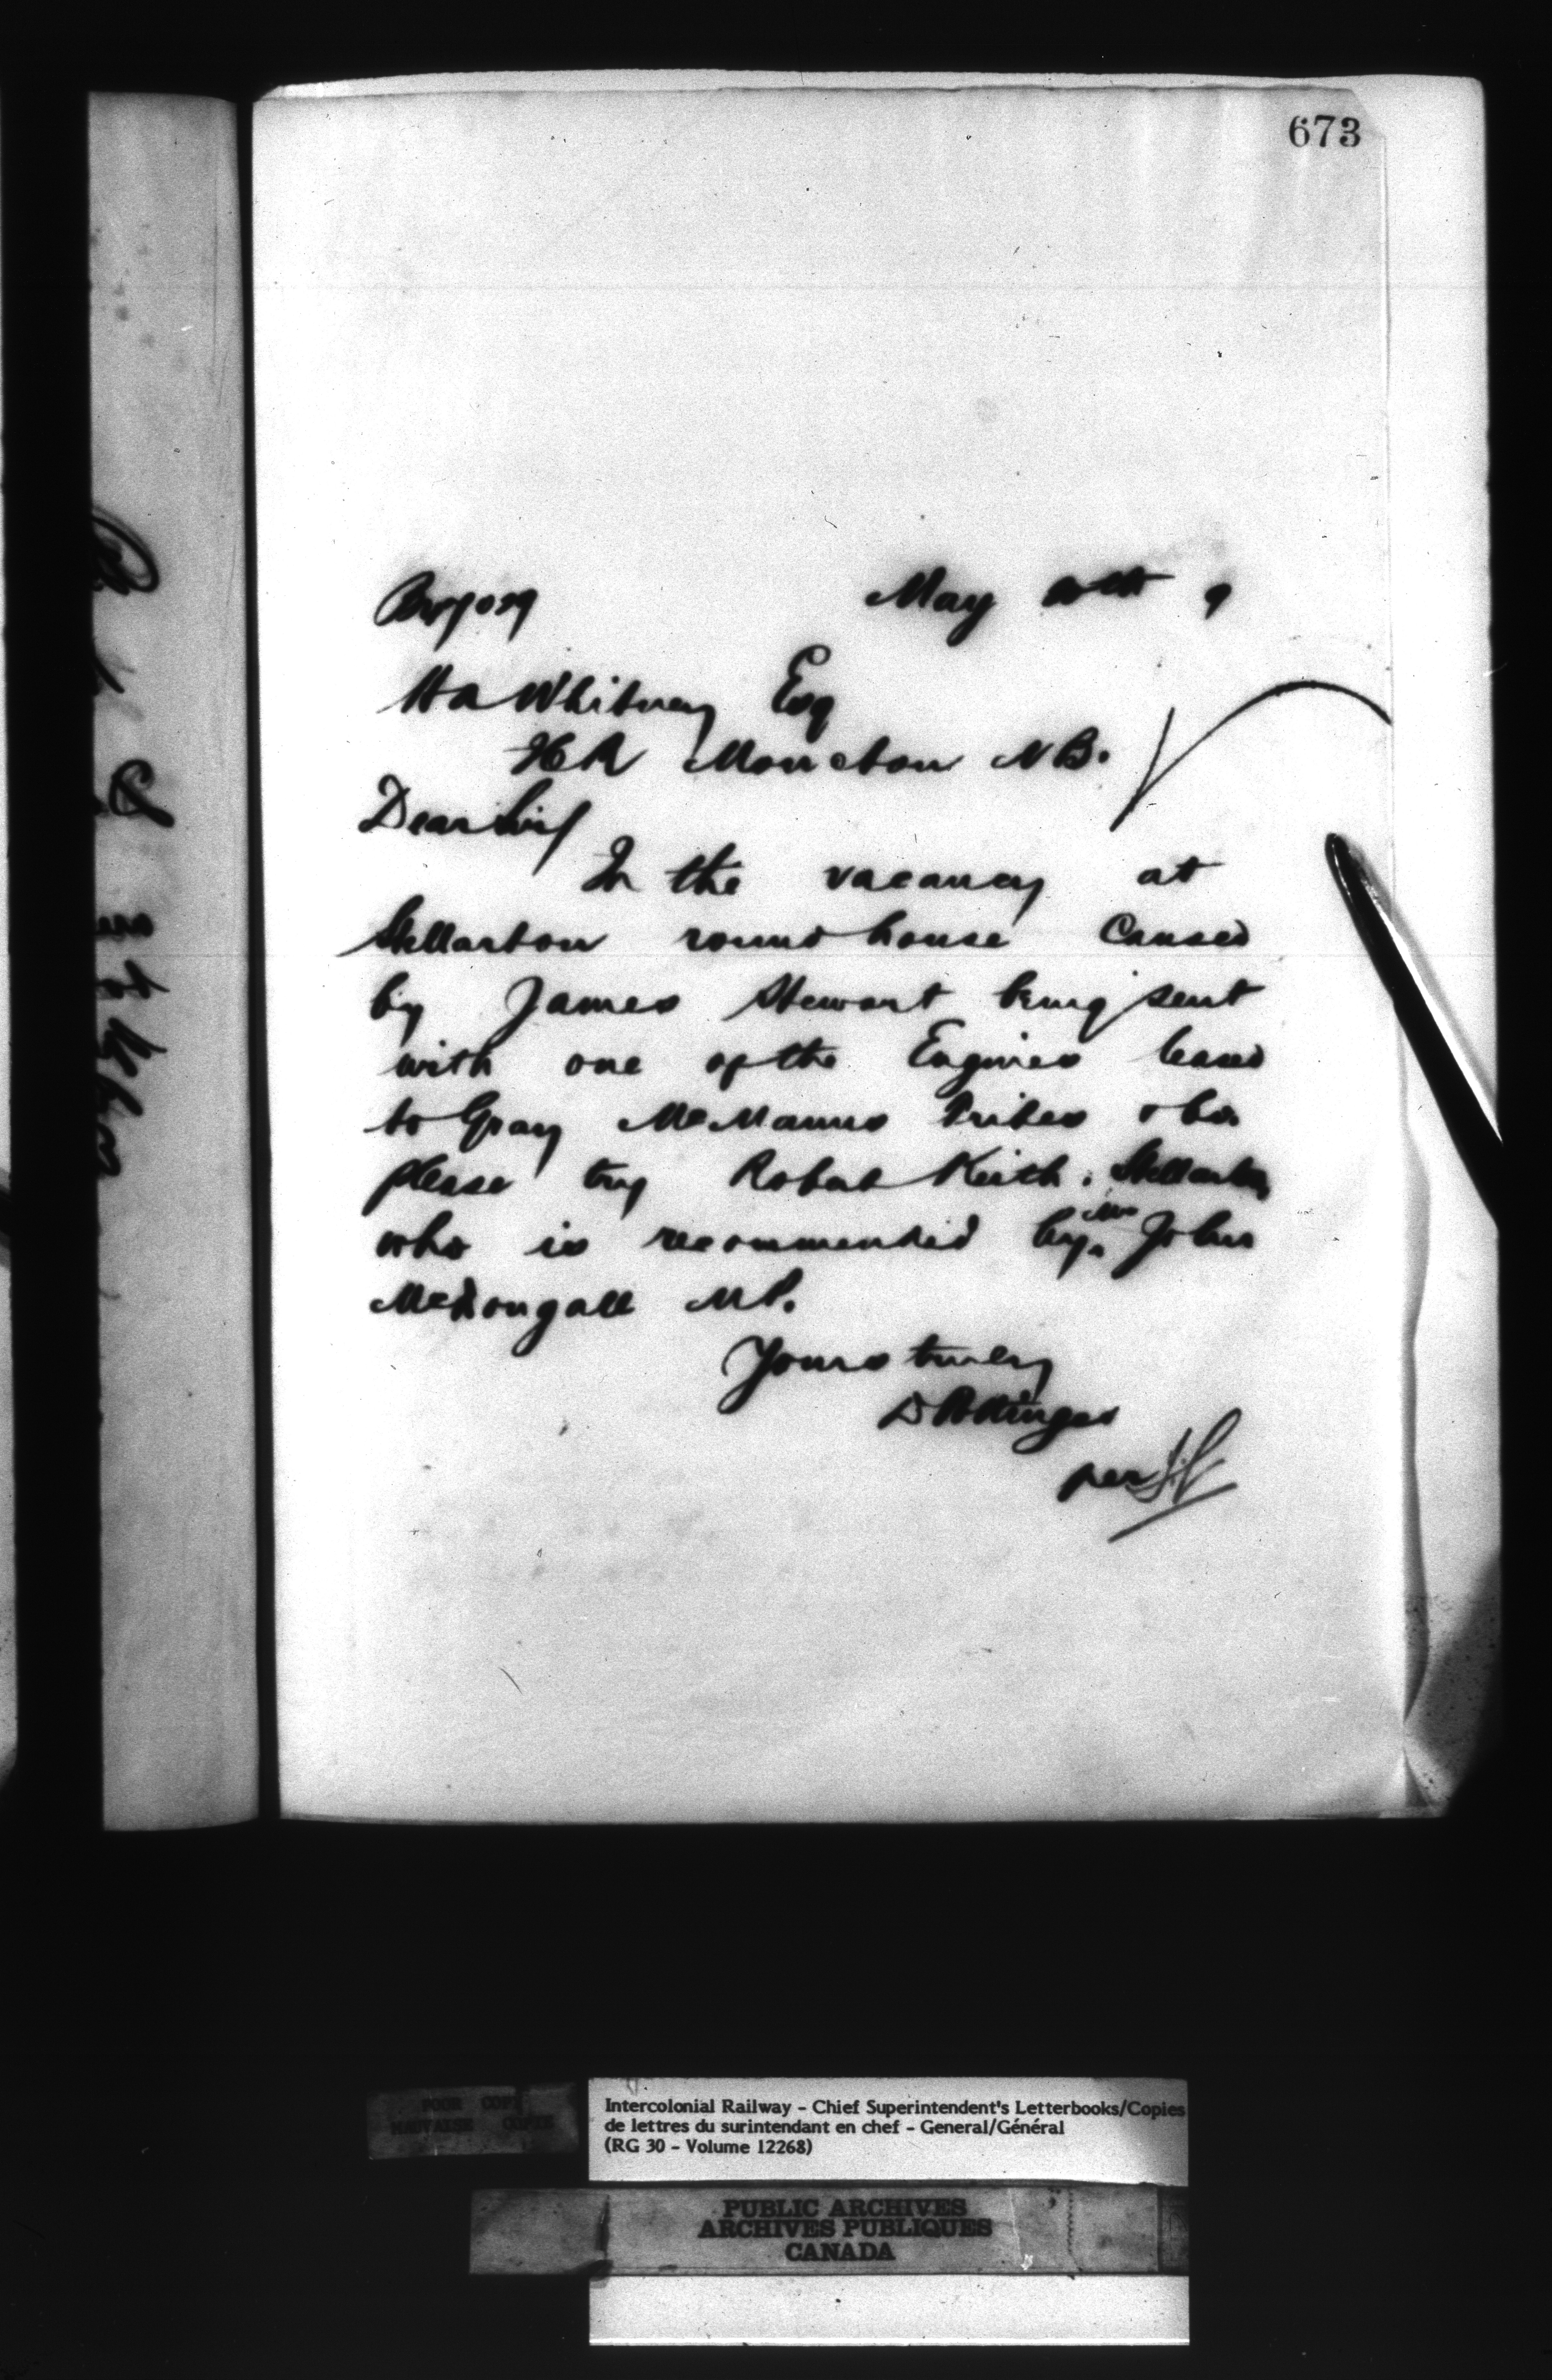 673
May 9
H A Whitney Esq
Moncton N B.
Dear Sir/
In the vacancy at
Stellarton round house Caused
by James Stewart being sent
with one of the Engines leased
to Gray McManus &
please try Robert Keith, Stellarton
who is recommended by Mr John
McDougall M P.
Yours truly
D Pottinger
per
POOR COPY
MAUVAISE COPIE
Intercolonial Railway - Chief Superintendent's Letterbooks/Copies
de lettres du surintendant en chef - General/Général
(RG 30 - Volume 12268)
PUBLIC ARCHIVES
ARCHIVES PUBLIQUES
CANADA